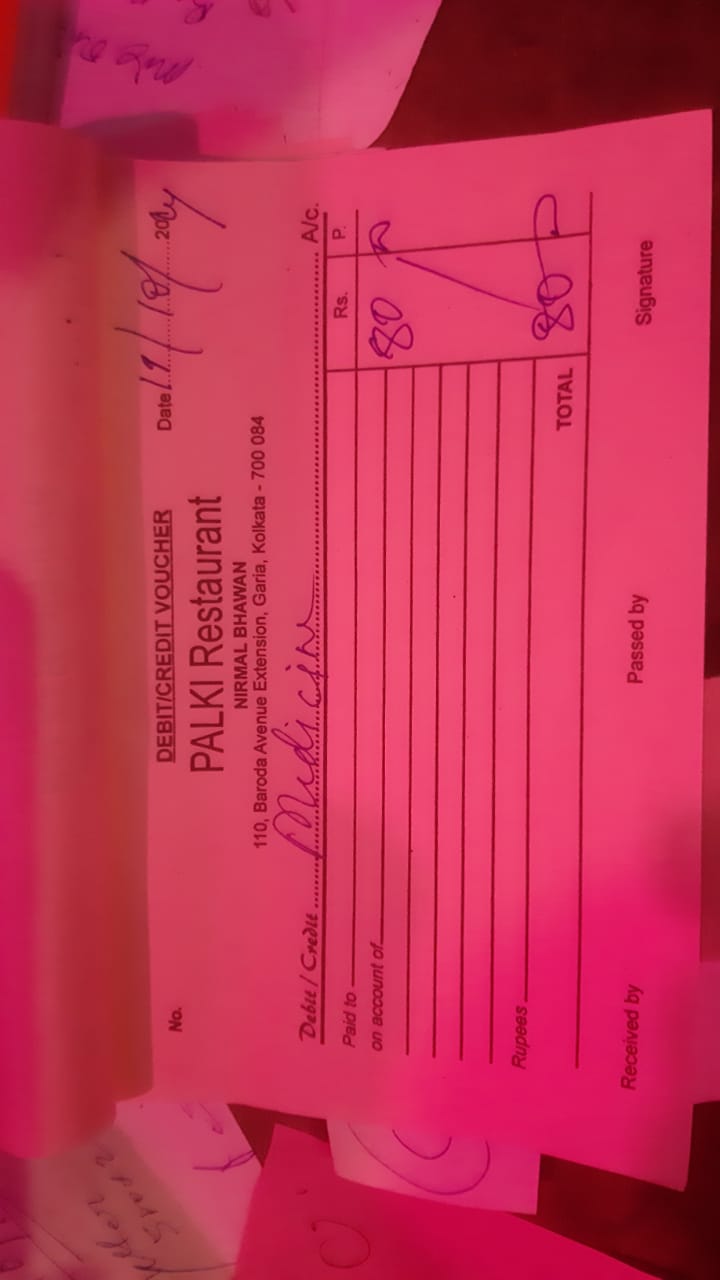 DEBIT/CREDIT VOUCHER
No.
PALKI Restaurant
Date 19/10/2024
NIRMAL BHAWAN
110, Baroda Avenue Extension, Garia, Kolkata - 700 084
Debit / Credit Medicine A/c.
Paid to Rs. P.
on account of 80
Rupees
TOTAL 80
Received by Passed by Signature